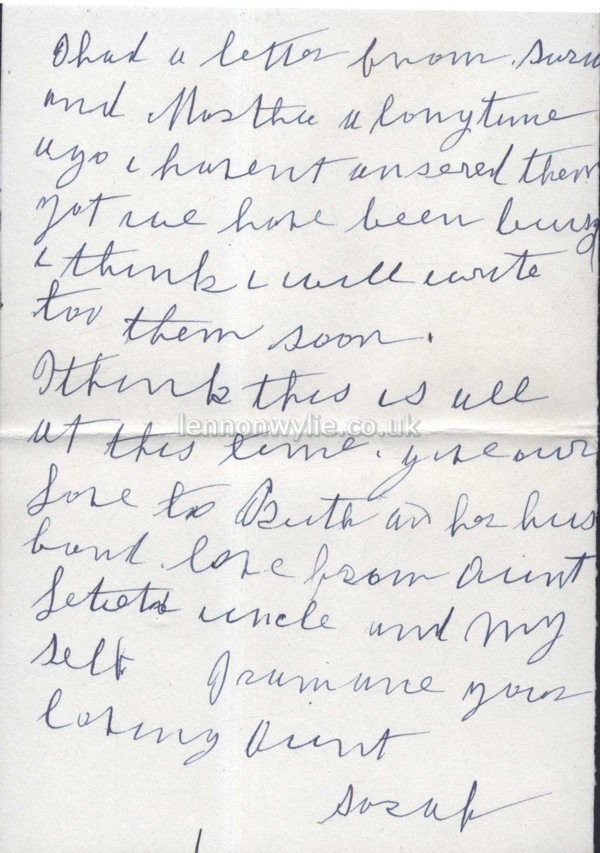 I had a letter from Sara
and Martha a long time
ago i havent ansered them
yot we have been busy
i think i will write
too them soon.
I think this is all
at this time. give our
love to Ruth an her hus
band. love from Aunt
Letetia uncle and my
self I ramane your
loving Aunt
Sarah
lennonwylie.co.uk